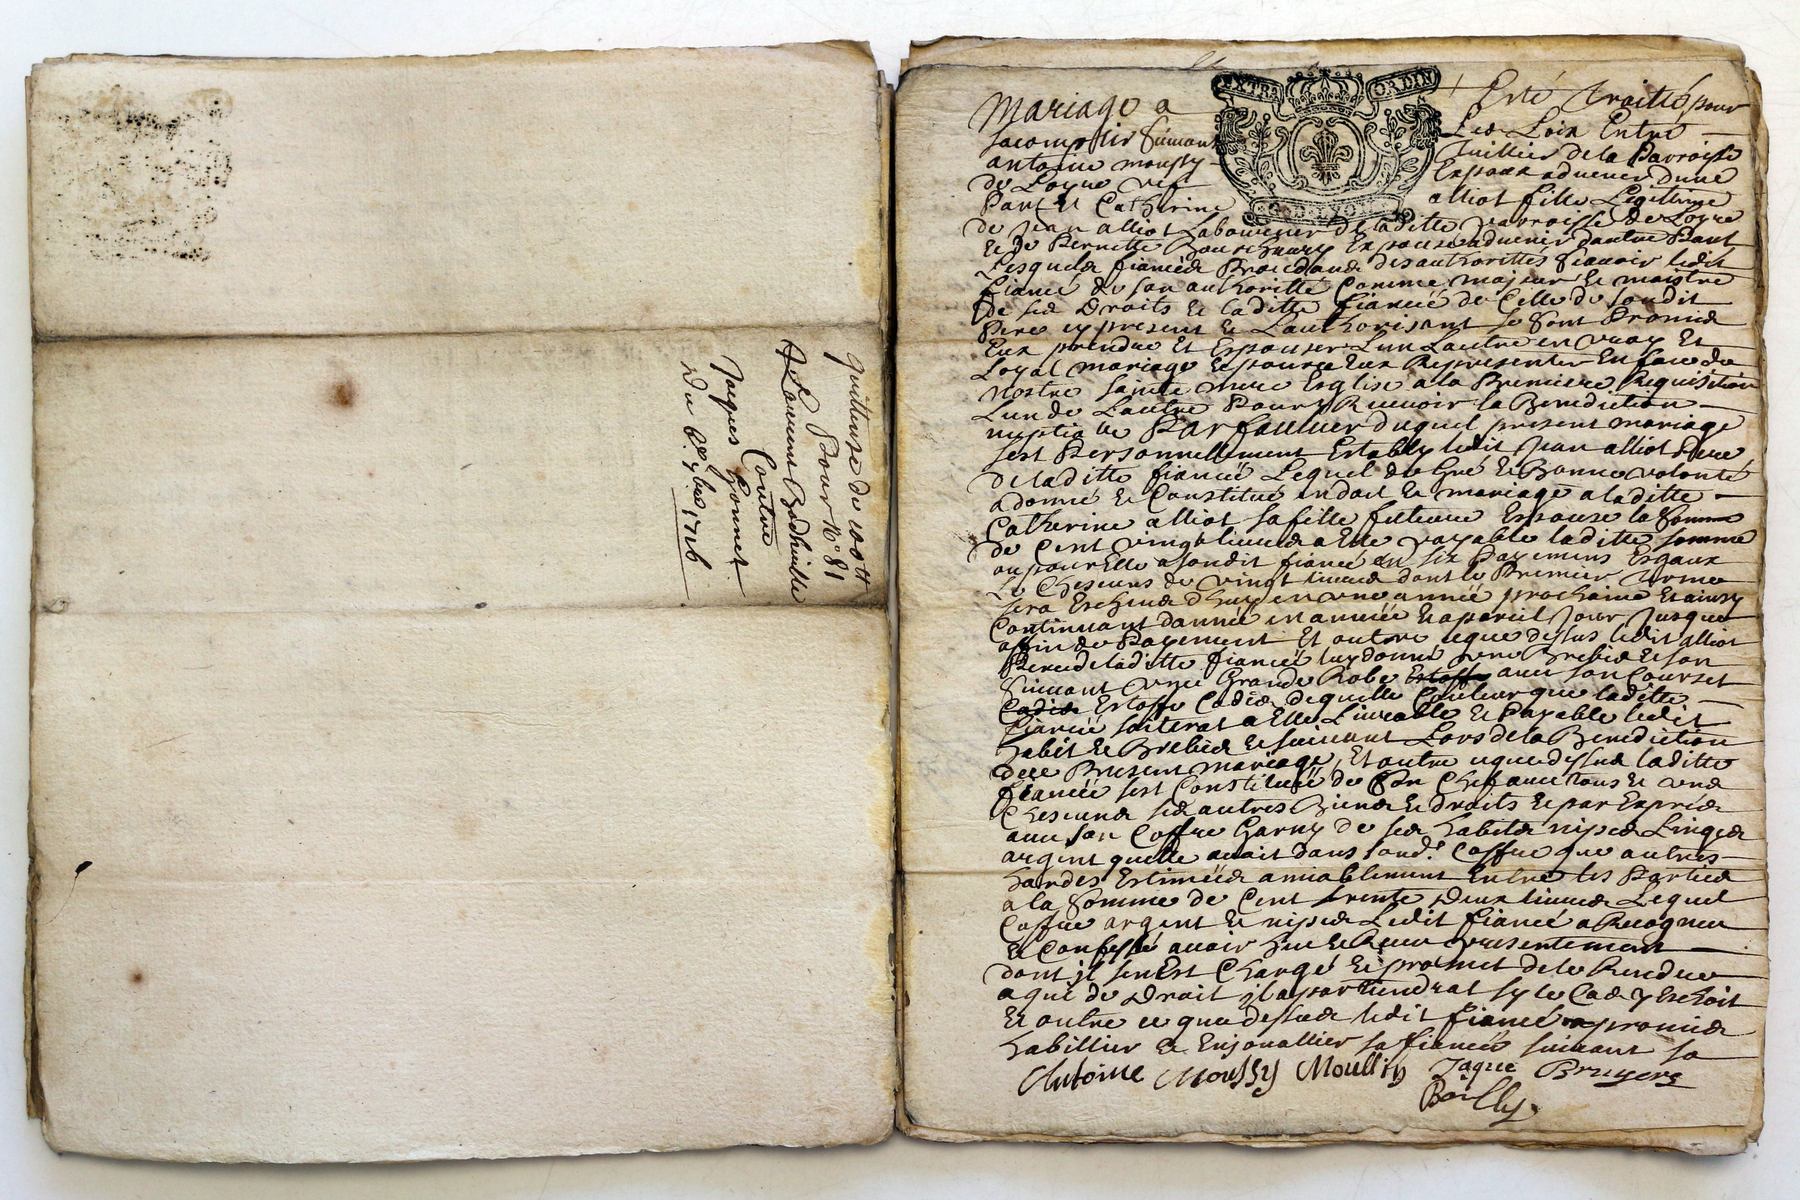 quittance de 100tt
Pour N° 81
Laurent
Contre
Jaques Gonnet
Du 6e 7bre 1716
EXTRA ORDIN
Mariage a Esté traitté pour
sacomplir suivant Les Loix Entre
antoine moussy tuillier de la Parroisse
de Loyre Espoux advenir dune
Part Et Catherine alliot fille Legittime
de Jean alliot Laboureur de laditte parroisse de Loyre
Et de Pernette Espouse advenir dautre Part
Lesquels fiancés Procedans des authorittés scavoir ledit
fiancé de son authoritté Comme majeur Et maistre
de ses Droits Et laditte fiancée de Celle de sondit
Pere cy present Et Lauthorisant se sont Promis
Eux prendre Et Espouser Lun Lautre en vray Et
Loyal mariage Et pource Eux Representer En face de
nostre sainte mere Esglise a la Premiere Requisition
Lun de Lautre Pour y Recevoir la Benediction
nuptialle Par faveur duquel present mariage
sest Personnellement Estably ledit Jean alliot Pere
de laditte fiancée Lequel de Gré Et Bonne volonté
a donné Et Constitué en dot Et mariage a laditte
Catherine alliot sa fille future Espouse la somme
de Cent vingt livres a Elle payable laditte somme
ou pour Elle a sondit fiancé en six Payemens Esgaux
Chescuns de vingt livres dont le Premier terme
sera Escheus dhuy en une année prochaine Et ainsy
Continuant dannée en année Et a pareil Jour Jusques
a fin de Payement Et outre ce que dessus ledit alliot
Pere de laditte fiancée luy donne une Brebis Et son
suivant une Grande Robe avec son Courset
Estoffe Cadis de quelle Couleur que laditte
fiancée soiterat a Elle Livrable Et Payable ledit
habit Et Brebis Et suivant Lors de la Benediction
de ce Present mariage, Et outre ce que dessus laditte
fiancée sest Constituée de son Chef avec tous Et uns
Chescuns ses autres Biens Et droits Et par Exprés
avec son Coffre Garny de ses habits nipes Linges
argent quelle avait dans soud.t Coffre que autres
hardes Estimées amiablement Entre les Parties
a la somme de Cent trente Deux livres Lequel
Coffre argent Et nipes Ledit fiancé a Recogneu
Et Confessé avoir heu Et Receu presentement
dont il sen Est Chargé Et promet de le Rendre
a qui de Droit il appartiendrat sy le Cas y Escheoit
Et outre ce que dessus ledit fiancé a promis
habillier Et Enjouallier sa fiancée suivant sa
Antoine Moussy Moullin Jaque Bruyere
Boilly